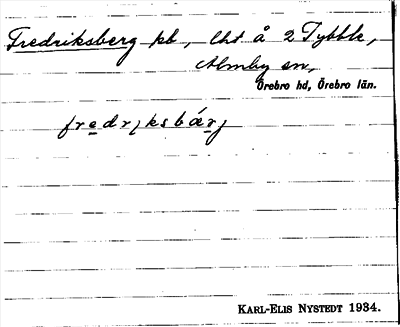 Fredriksberg pb, lht å 2 Tybble,
Almby sn,
Örebro hd, Örebro län.
fredriksbärj
KARL-ELIS NYSTEDT 1934.